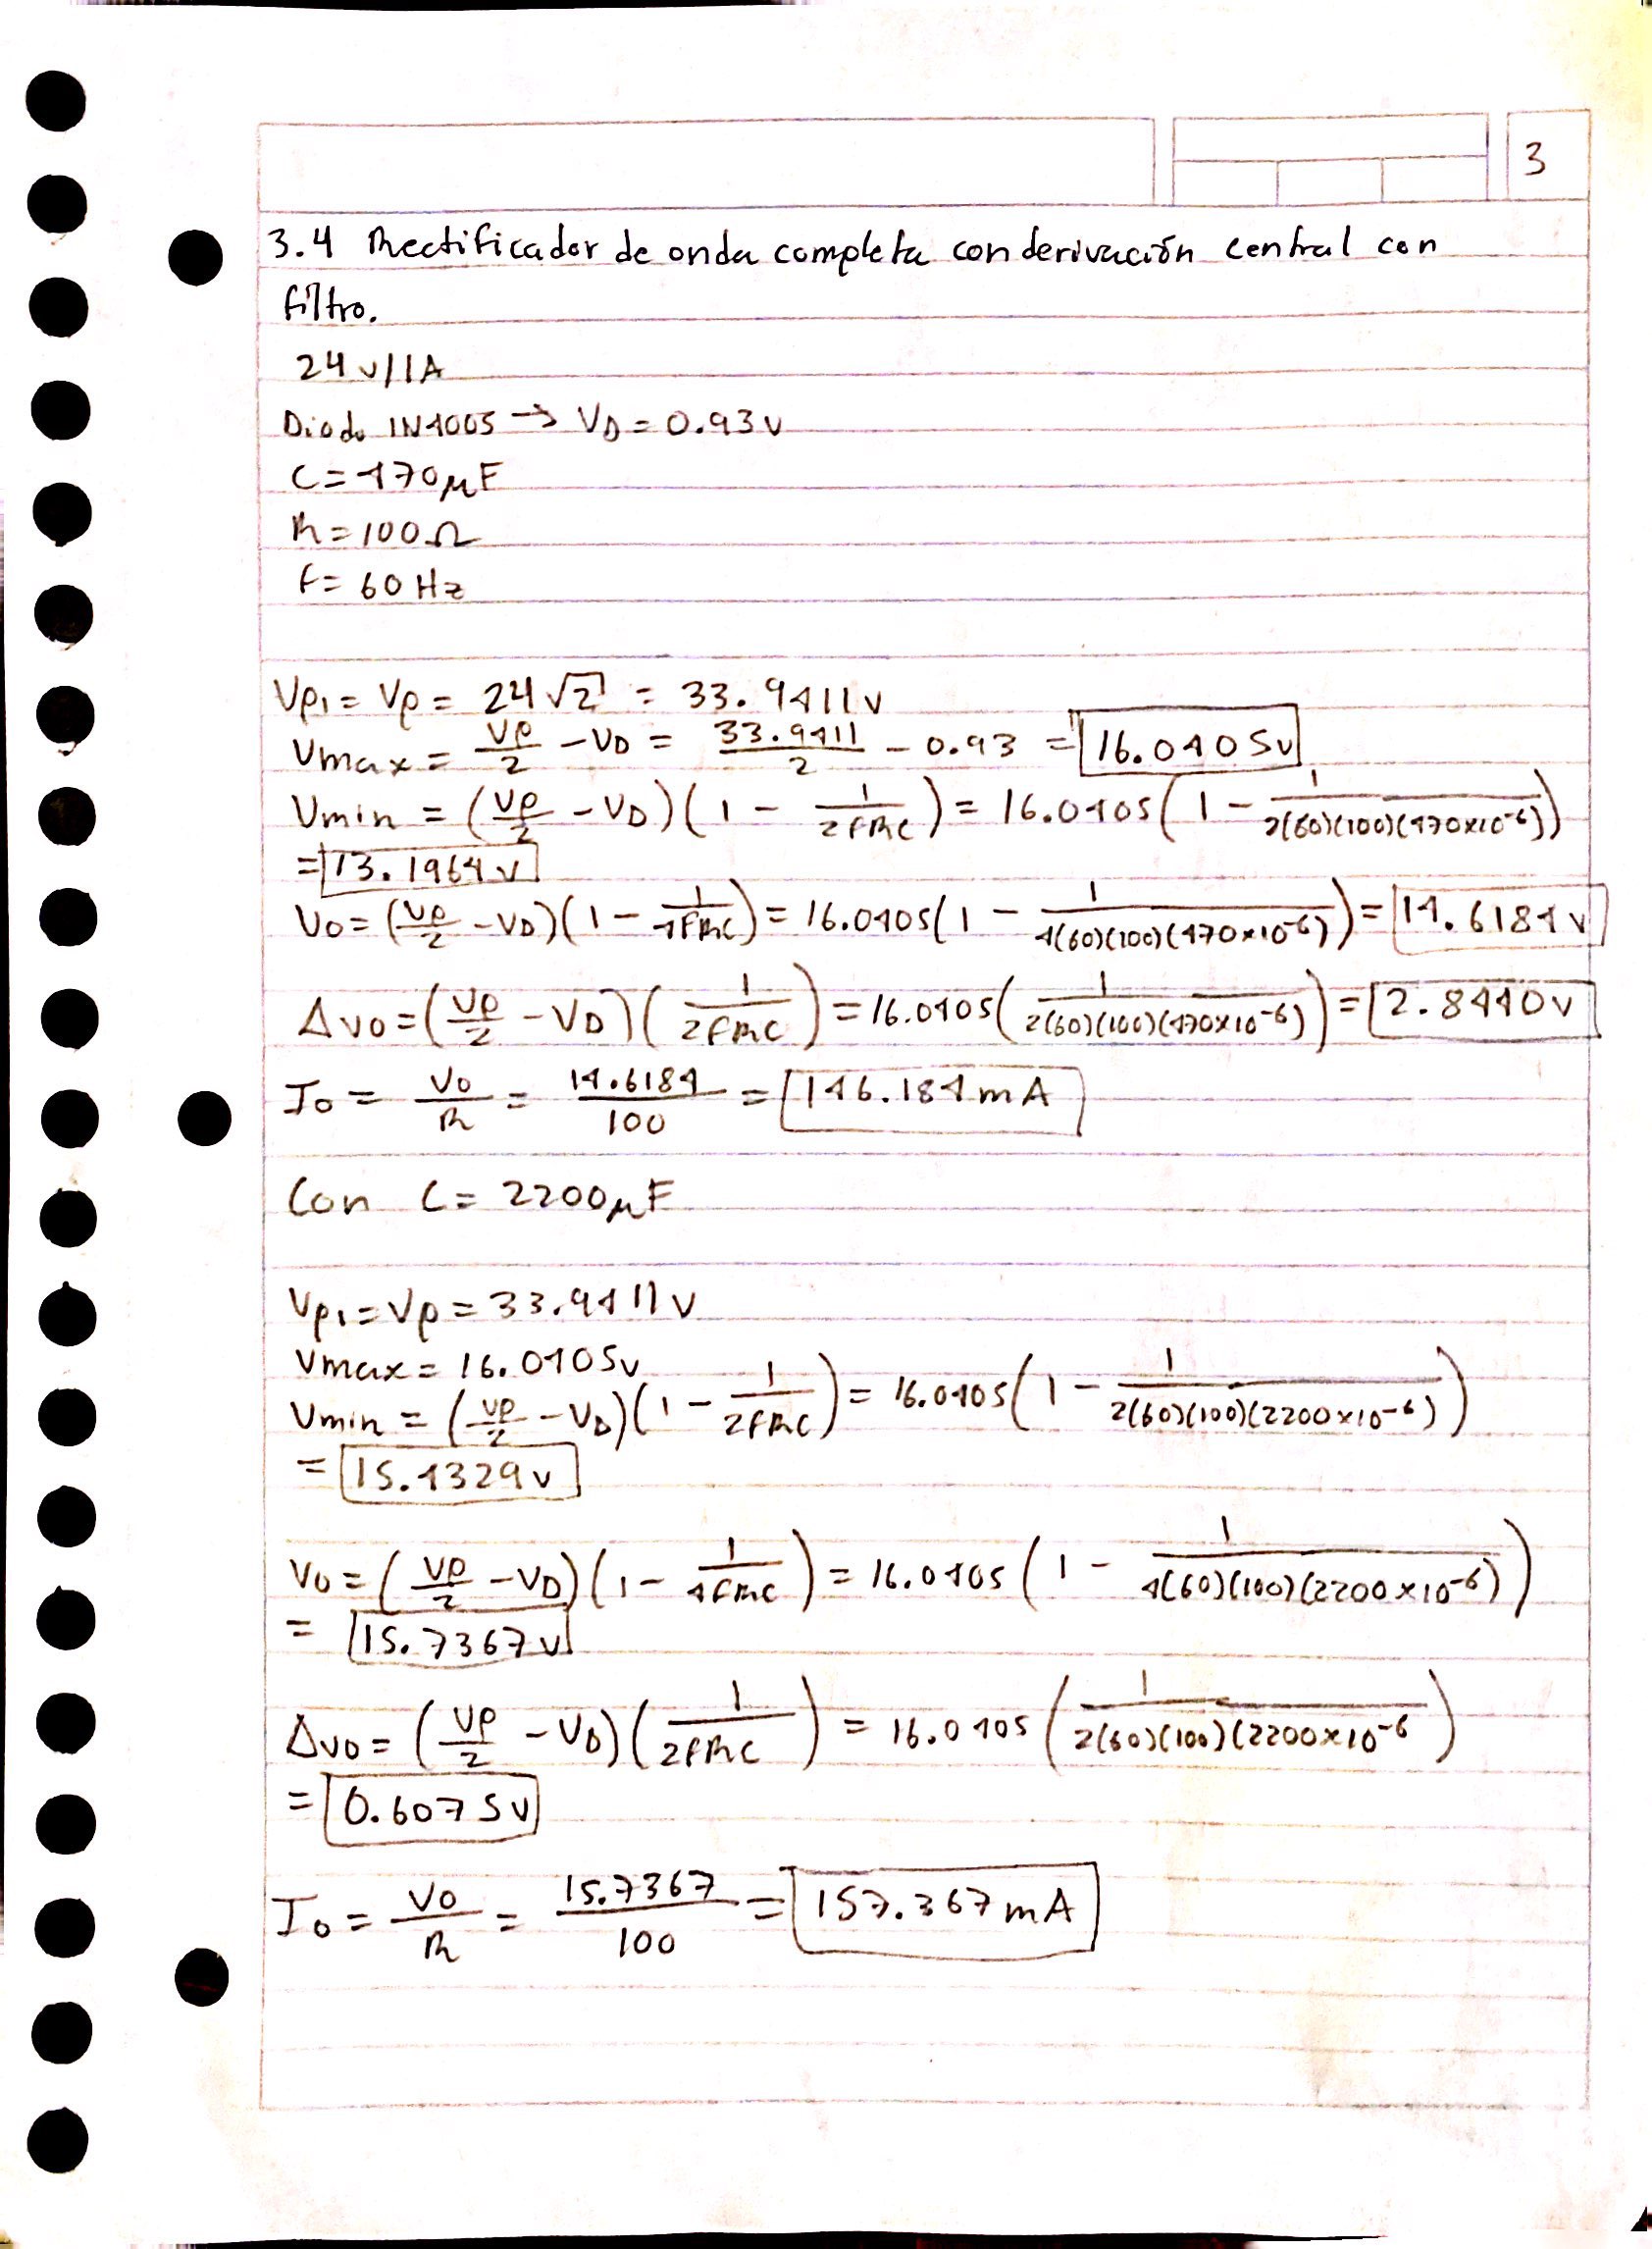 3
3.4 Rectificador de onda completa con derivación central con
filtro.
24 v/1A
Diodo 1N4005 → VD = 0.93 v
C = 470 μF
R = 100 Ω
f = 60 Hz
Vp1 = Vp = 24√2 = 33.9411 v
Vmax = Vp/2 - VD = 33.9411/2 - 0.93 = 16.0405 v
Vmin = (Vp/2 - VD)(1 - 1/2fRC) = 16.0405(1 - 1/2(60)(100)(470x10^-6))
= 13.1964 v
Vo = (Vp/2 - VD)(1 - 1/4fRC) = 16.0405(1 - 1/4(60)(100)(470x10^-6)) = 14.6184 v
ΔVo = (Vp/2 - VD)(1/2fRC) = 16.0405(1/2(60)(100)(470x10^-6)) = 2.8440 v
Io = Vo/R = 14.6184/100 = 146.184 mA
Con C = 2200 μF
Vp1 = Vp = 33.9411 v
Vmax = 16.0405 v
Vmin = (Vp/2 - VD)(1 - 1/2fRC) = 16.0405(1 - 1/2(60)(100)(2200x10^-6))
= 15.4329 v
Vo = (Vp/2 - VD)(1 - 1/4fRC) = 16.0405(1 - 1/4(60)(100)(2200x10^-6))
= 15.7367 v
ΔVo = (Vp/2 - VD)(1/2fRC) = 16.0405(1/2(60)(100)(2200x10^-6)
= 0.6075 v
Io = Vo/R = 15.7367/100 = 157.367 mA